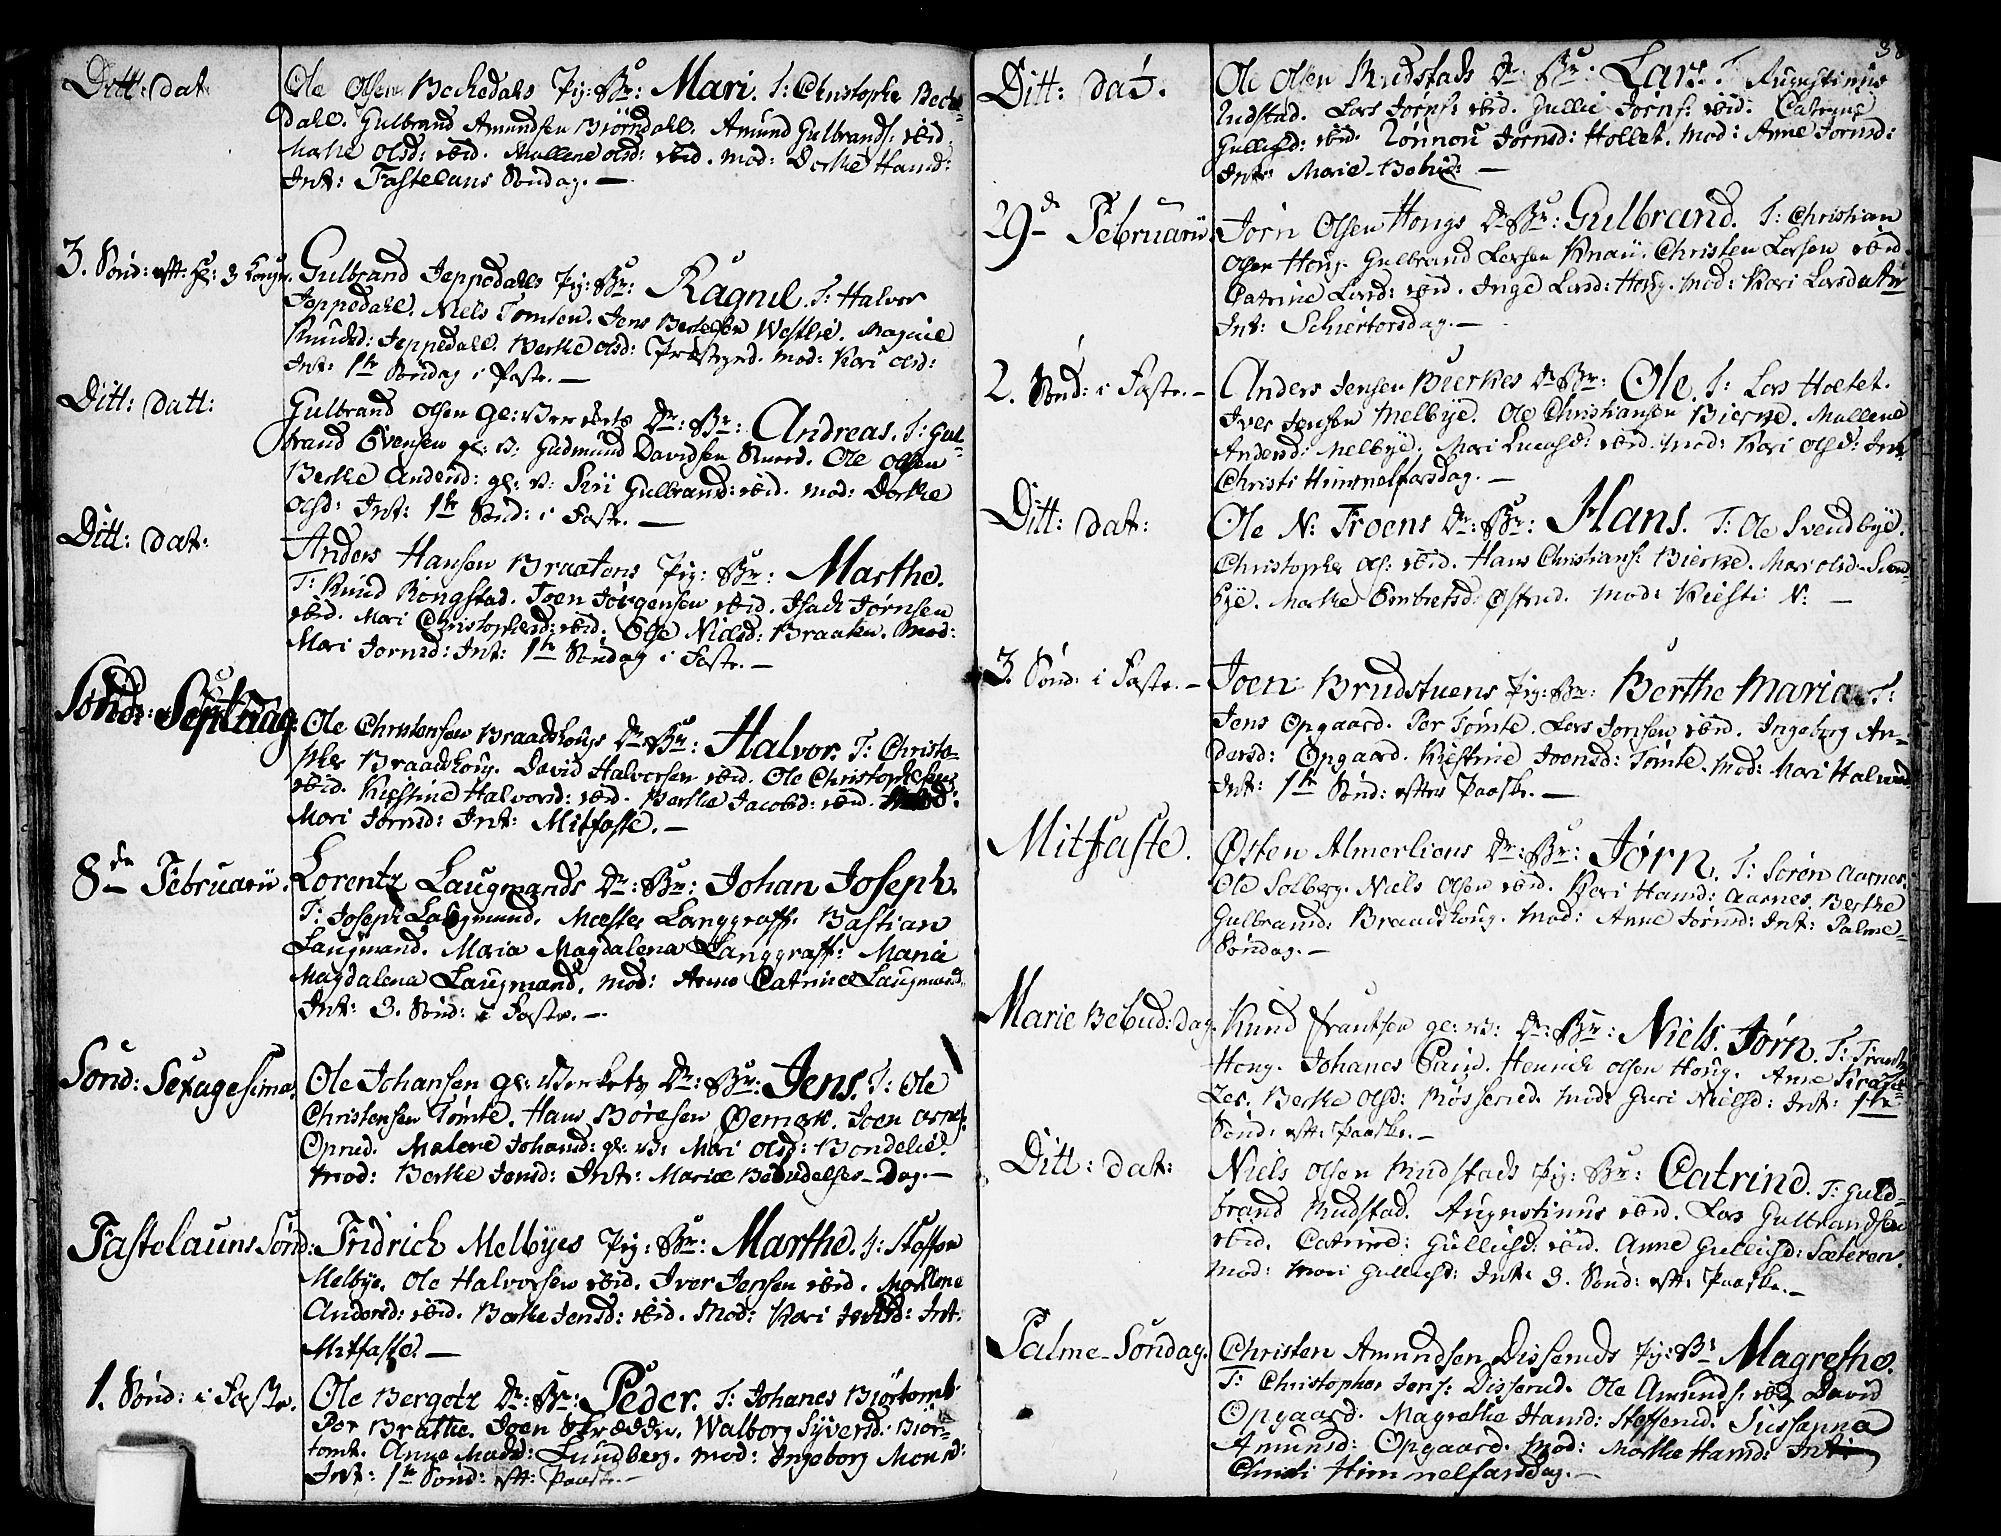 Ditt: dat:
Ole Olsen Beckedals Pig: Br: Mari. T: Christopher Becke-
dahl. Gulbrand Amundsen Biørndahl. Amund Gulbrands: ibid.
Marthe Olsd: ibid. Mallene olsd: ibid. mod: Dorthe Hansd:
Int: Fastelauns Søndag. —
3. Sønd: eft: H: 3 Konger.
Gulbrand Jeppedahls Pig: Br: Ragnil. T: Halvor
Jeppedahl. Niels Tomten. Jens Berthelsen Westlie. Magnil
Knudsd: Jeppedahl. Berthe olsd: Præstegrd. mod: Kari olsd:
Int: 1te Søndag i Faste. —
Ditt: datt:
Gulbrand Olsen gl: Werckets Dr: Br: Andreas. T: Gul-
brand Evensen gl: V: Gudmund Davidsen Ole Olsen
Berthe Andersd: gl: v: Siri Gulbrandsd: ibid. mod: Dorthe
olsd: Int: 1te Sønd: i Faste. —
Ditt: dat:
Anders Hansen Braatens Pig: Br: Marthe.
T: Knud Rongstad. Joen Jørgensen ibid. Isach Jørnsen
ibid. Mari Christophersd: ibid. Else Nielsd: Braaten. Mod:
Mari Jørnsd: Int: 1te Søndag i Faste. —
Sønd: Septuag:
Ole Christensen Braadhougs Dr: Br: Halvor. T: Christo-
pher Braadhoug. David Halvorsen ibid. Ole Christophersen
ibid. Kirstine Halvorsd: ibid. Berthe Jacobsd: ibid. Mod:
Mari Jørnsd: Int: Mitfaste. —
8de Februarii.
Lorentz Laugmands Dr: Br: Johan Joseph.
T: Joseph Laugmand. Mester Langgraff. Bastian
Laugmand. Maria Magdalena Langgraff: Maria
Magdalena Laugmand. mod: Anne Catrine Laugmand.
Int: 3. Sønd: i Faste. —
Sønd: Sexagesima.
Ole Johansen gl: Verkets Dr: Br: Jens. T: Ole
Christensen Tømte. Hans Børesen Øemark. Joen
Oprud. Malene Johansd: gl: V: Mari olsd: Bondelie.
mod: Berthe Jensd: Int: Mariæ Bebudelses-Dag. —
Fastelauns Sønd:
Fridrich Melbyes Pig: Br: Marthe. T: Staffen
Melbye. Ole Halvorsen ibid. Iver Jensen ibid. Mallene
Andersd: ibid. Berthe Jensd: ibid. Mod: Kari Int:
Mitfaste. —
1. Sønd: i Faste.
Ole Bergots Dr: Br: Peder. T: Johanes Biørtomt.
Per Brathe. Joen Skrædder. Walborg Syversd: Biør-
tomt. Anne Madsd: Lundberg. mod: Ingeborg Monsd:
Int: 1te Sønd: eft: Paaske. —
38
Ditt: dat.
Ole Olsen Rudstads Dr: Br: Lars. T: Augustinus
Rudstad. Lars Jørnsen ibid. Gullic Jørns: ibid: Catrine
Gullicsd: ibid. Rønnou Jørnsd: Hollet. Mod: Anne Jørnsd:
Int: Marie-Bebud: —
29de Februarii.
Jørn Olsen Hougs Dr: Br: Gulbrand. T: Christian
Olsen Houg. Gulbrand Larsen Knau. Christen Larsen ibid.
Catrine Larsd: ibid. Inge Larsd: Houg. Mod: Kari Larsdatr
Int: Schiertorsdag. —
2. Sønd: i Faste. —
Anders Jensen Bierkes Dr: Br: Ole. T: Lars Holtet.
Iver Jensen Melbye. Ole Christiansen Bierke. Mallene
Andersd: Melbye. Mari ibid. Mod: Kari Olsd: Int:
Christi Himmelfarsdag. —
Ditt: dat:
Ole N: Troens Dr: Br: Hans. T: Ole Svendbye.
Christopher Ols: ibid. Hans Christians: Bierke. Mari olsd: Svend-
bye. Marthe Embretsd: Østerud. Mod: Kirsti N: —
3. Sønd: i Faste. —
Joen Brudstuens Pig: Br: Berthe Maria. T:
Jens Opgaard. Per Tømte. Lars Jonsen ibid. Ingeborg An-
dersd: Opgaard. Kirstine Joensd: Tømte. Mod: Mari Halvorsd:
Int: 1te Sønd: efter Paaske. —
Mitfaste.
Østen Almerliens Dr: Br: Jørn. T: Søren Aarnes.
Ole Solberg. Niels Olsen ibid. Kari Hansd: Aarnes. Berthe
Gulbrandsd: Braadhoug. Mod: Anne Jørnsd: Int: Palme-
Søndag. —
Marie Bebud: dag.
Knud Frantsen gl: V: Dr: Br: Niels Jørn. T: Frants
Houg. Johanes Henrich Olsen Houg. Anne
Berthe Olsd: Røsserud. Mod: Guri Nielsd: Int: 1te
Sønd: eft: Paaske. —
Ditt: dat:
Niels Olsen Rudstads Pig: Br: Catrine. T: Guld-
brand Rudstad. Augustinus ibid. Lars Gulbrandsen
ibid. Catrine: Gullicsd: ibid. Anne Gullicsd: Sæteren.
Mod: Mari Gullicsd: Int: 3. Sønd: eft: Paaske. —
Palme-Søndag.
Christen Amundsen Disseruds Pig: Br: Magrethe.
T: Christopher Jens: Disserud. Ole Amunds: ibid. David
Opgaard. Magrethe Hansd: Stefferud. Sussanna
Amunsd: Opgaard. Mod: Marthe Hansd: Int:
Christi Himmelfarsdag. —